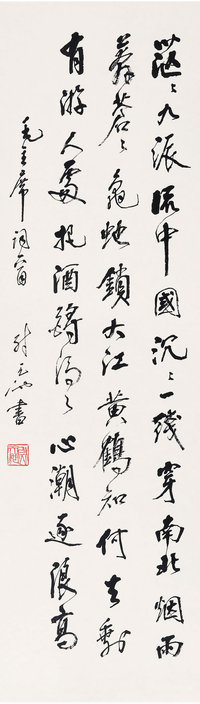 茫〻九派流中國沉〻一綫穿南北烟雨
莽蒼〻龜蛇鎖大江黄鶴知何去剩
有游人處把酒酹滔〻心潮逐浪高
毛主席詞一首
書